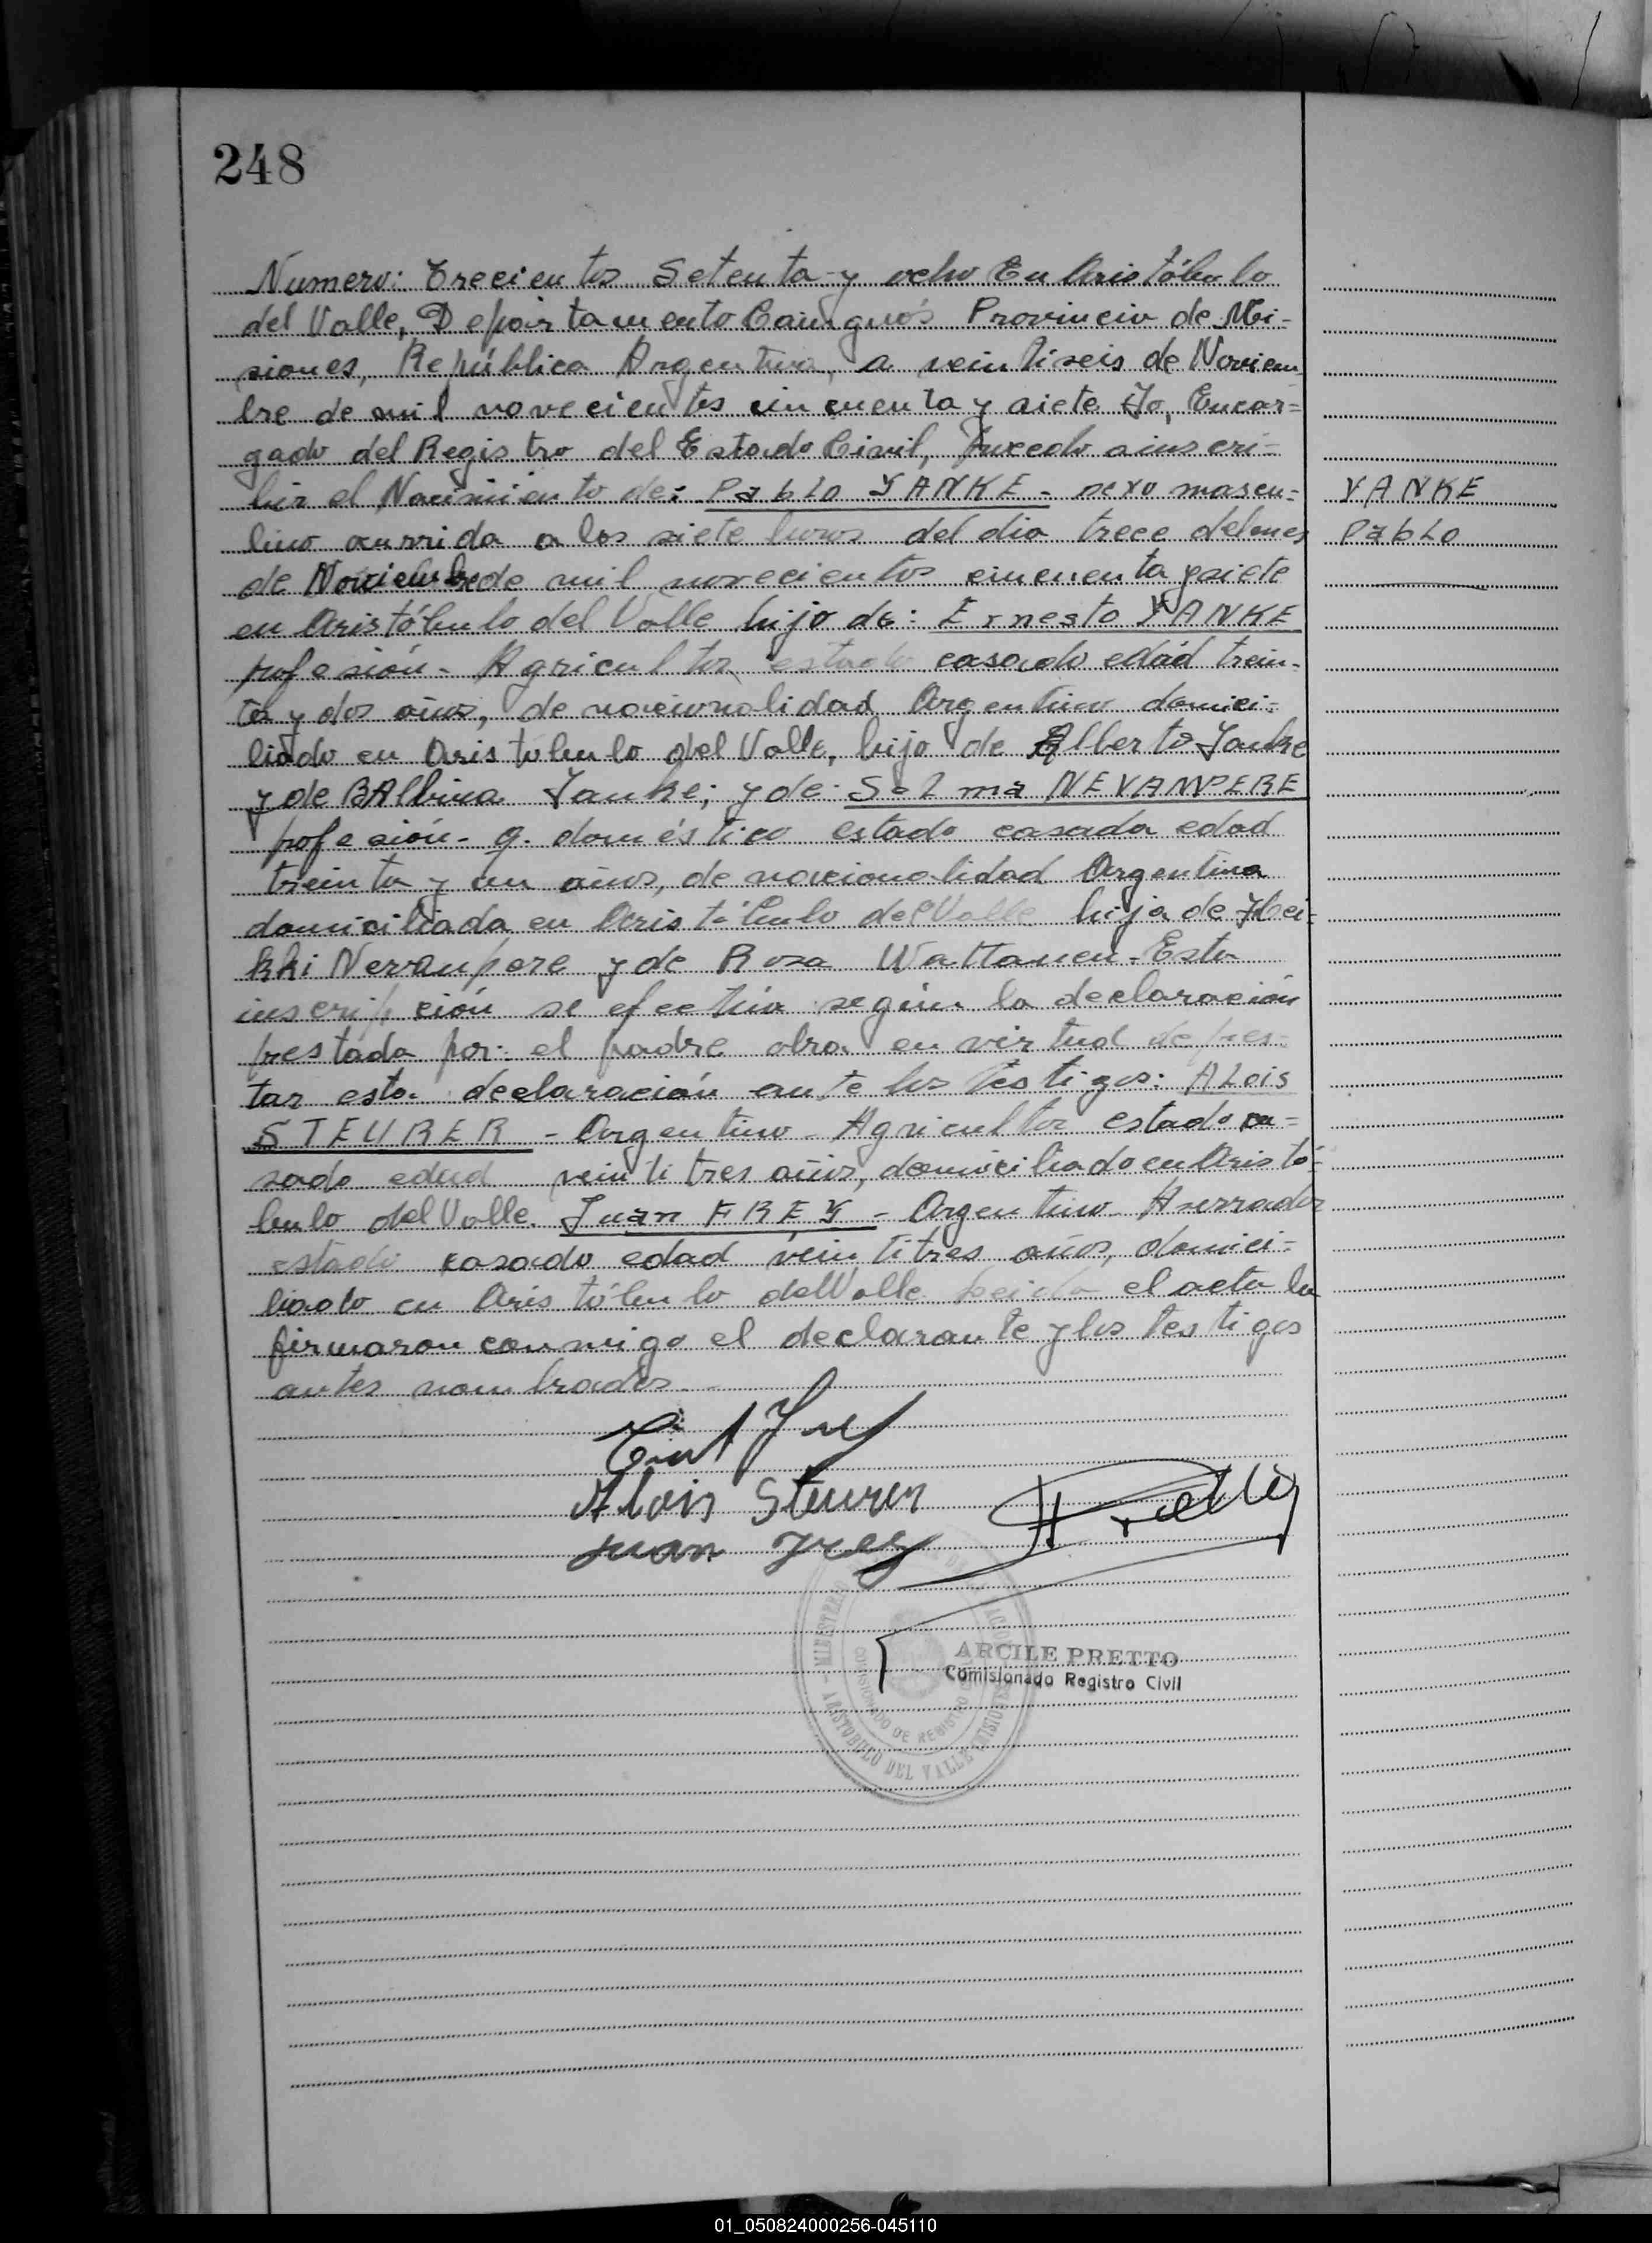 248
Numero: Trecientos Setenta y ocho En Aristóbulo
del Valle, Departamento Cainguás Provincia de Mi-
siones, República Argentina, a veintiseis de Noviem
bre de mil novecientos cincuenta y siete Yo, Encar=
gado del Registro del Estado Civil, Procedo a inscri-
bir el Nacimiento de: Pablo YANKE - sexo mascu=
YANKE
lino ocurrida a las siete horas del dia trece del mes
Pablo
de Noviembre de mil novecientos cincuenta y siete
en Aristóbulo del Valle hijo de: Ernesto YANKE
profesión - Agricultor estado casado edad trein-
ta y dos años, de nacionalidad Argentino domici-
liado en Aristobulo del Valle, hijo de Alberto Yanke
y de BAlbina Yanke; y de: Selma NEVANPERE
profesión - q. doméstico estado casada edad
treinta y un años, de nacionalidad Argentina
domiciliada en Aristóbulo del Valle hija de Hei=
kki Nevanpere y de Rosa Wattanen - Esta
inscripción se efectúa según la declaración
prestada por: el padre obra en virtud de pres-
tar esta declaración ante los testigos: ALois
STEURER - Argentino - Agricultor estado ca=
sado edad veintitres años, domiciliado en Aristó-
bulo del Valle. Juan FREY - Argentino - Aserrador
estado casado edad veintitres años, domici-
liado en Aristóbulo del Valle Leida el acta la
firmaron conmigo el declarante y los testigos
antes nombrados
Alois Steurer
Juan Frey
ARCILE PRETTO
Comisionado Registro Civil
MINISTERIO
ARISTOBULO DEL VALLE (MISIONES)
01_050824000256-045110